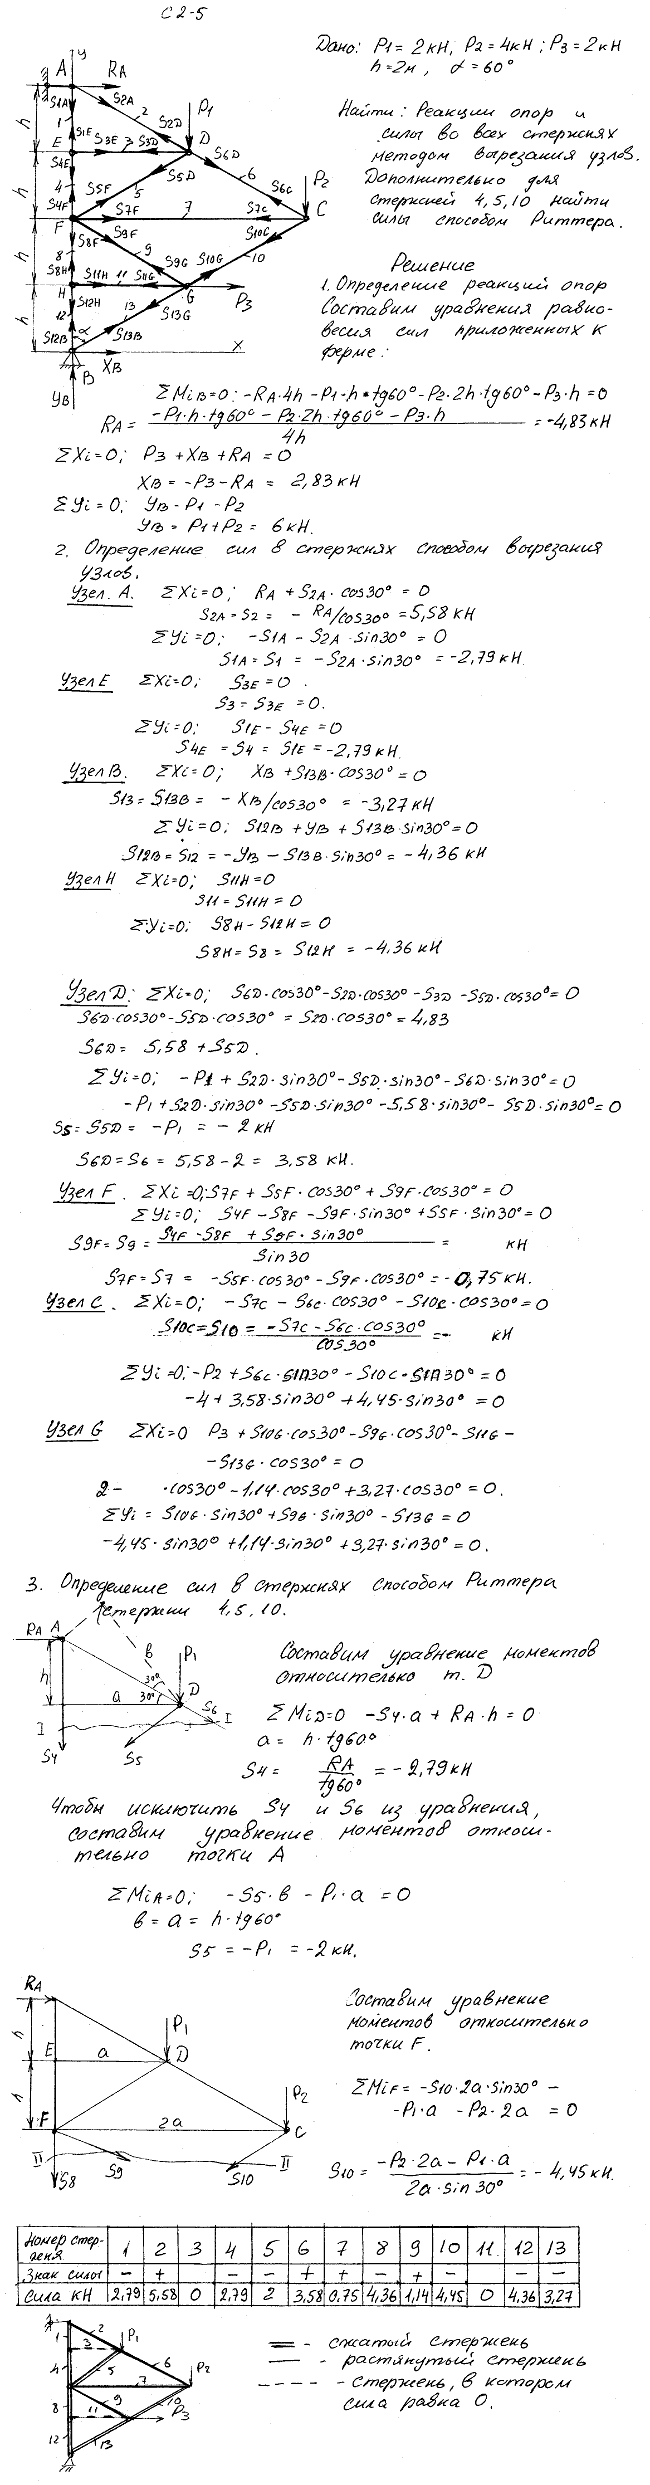 С2-5
Дано: P1 = 2кН; P2 = 4кН; P3 = 2кН
h = 2м, α = 60°
Найти: Реакции опор и
силы во всех стержнях
методом вырезания узлов.
Дополнительно для
стержней 4,5,10 найти
силы способом Риттера.
y
A RA
S1A S2A 2 P1
1 S2D
h
S1E S3E 3 S3D D
E
S4E S6D
4 S5F 5 S5D 6 P2
h
S4F S6C
F S7F 7 S7C C
S8F S9F S10C
8 9 10
h
S8H S9G S10G
H S11H 11 S11G G P3
S12H 13 S13G
12
h
S12B α S13B
B XB X
YB
Решение
1. Определение реакций опор
Составим уравнения равно-
весия сил приложенных к
ферме:
ΣMiB=0: -RA·4h - P1·h·tg60° - P2·2h·tg60° - P3·h = 0
RA = -P1·h·tg60° - P2·2h·tg60° - P3·h / 4h = -4,83 кН
ΣXi=0; P3 + XB + RA = 0
XB = -P3 - RA = 2,83 кН
ΣYi=0; YB - P1 - P2
YB = P1 + P2 = 6 кН.
2. Определение сил в стержнях способом вырезания
узлов.
Узел. A. ΣXi=0; RA + S2A·cos30° = 0
S2A = S2 = - RA/cos30° = 5,58 кН
ΣYi=0; -S1A - S2A·sin30° = 0
S1A = S1 = -S2A·sin30° = -2,79 кН.
Узел E ΣXi=0; S3E = 0.
S3 = S3E = 0.
ΣYi=0; S1E - S4E = 0
S4E = S4 = S1E = -2,79 кН.
Узел B. ΣXi=0; XB + S13B·cos30° = 0
S13 = S13B = - XB/cos30° = -3,27 кН
ΣYi=0; S12B + YB + S13B·sin30° = 0
S12B = S12 = -YB - S13B·sin30° = -4,36 кН
Узел H ΣXi=0; S11H = 0
S11 = S11H = 0
ΣYi=0; S8H - S12H = 0
S8H = S8 = S12H = -4,36 кН
Узел D: ΣXi=0; S6D·cos30° - S2D·cos30° - S3D - S5D·cos30° = 0
S6D·cos30° - S5D·cos30° = S2D·cos30° = 4,83
S6D = 5,58 + S5D.
ΣYi=0; -P1 + S2D·sin30° - S5D·sin30° - S6D·sin30° = 0
-P1 + S2D·sin30° - S5D·sin30° - 5,58·sin30° - S5D·sin30° = 0
S5 = S5D = -P1 = -2 кН
S6D = S6 = 5,58 - 2 = 3,58 кН.
Узел F. ΣXi=0; S7F + S5F·cos30° + S9F·cos30° = 0
ΣYi=0; S4F - S8F - S9F·sin30° + S5F·sin30° = 0
S9F = S9 = S4F - S8F + S9F·sin30° / sin30 = кН
S7F = S7 = -S5F·cos30° - S9F·cos30° = -0,75 кН.
Узел C. ΣXi=0; -S7C - S6C·cos30° - S10C·cos30° = 0
S10C = S10 = -S7C - S6C·cos30° / cos30° = - кН
ΣYi=0; -P2 + S6C·sin30° - S10C·sin30° = 0
-4 + 3,58·sin30° + 4,45·sin30° = 0
Узел G ΣXi=0 P3 + S10G·cos30° - S9G·cos30° - S11G -
-S13G·cos30° = 0
2 - ·cos30° - 1,14·cos30° + 3,27·cos30° = 0.
ΣYi = S10G·sin30° + S9G·sin30° - S13G = 0
-4,45·sin30° + 1,14·sin30° + 3,27·sin30° = 0.
3. Определение сил в стержнях способом Риттера
стержни 4,5,10.
RA A
в P1
h 30°
a 30° D
S6
I I
S4 S5
Составим уравнение моментов
относительно т. D
ΣMiD=0 -S4·a + RA·h = 0
a = h·tg60°
S4 = RA / tg60° = -2,79 кН
Чтобы исключить S4 и S6 из уравнения,
составим уравнение моментов относи-
тельно точки A
ΣMiA=0; -S5·в - P1·a = 0
в = a = h·tg60°
S5 = -P1 = -2 кН.
RA
h P1
E a D
h P2
F 2a C
II S9 S10 II
S8
Составим уравнение
моментов относительно
точки F.
ΣMiF = -S10·2a·sin30° -
-P1·a - P2·2a = 0
S10 = -P2·2a - P1·a / 2a·sin30° = -4,45 кН.
Номер стер-
женя 1 2 3 4 5 6 7 8 9 10 11 12 13
Знак силы - + - - + + - + - - -
Сила кН 2,79 5,58 0 2,79 2 3,58 0,75 4,36 1,14 4,45 0 4,36 3,27
1 2 P1
3
4 5 6 P2
7
8 9 10
11 P3
12 13
- сжатый стержень
- растянутый стержень
- стержень, в котором
сила равна 0.